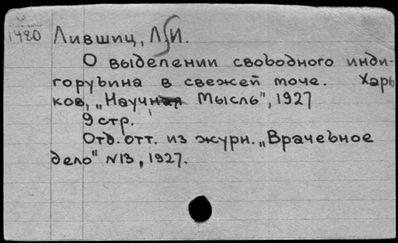 1480
Лившиц, Л. И.
О выделении свободного инди-
горубина в свежей моче. Харь
ков, „Научная Мысль", 1927
9 стр.
Отд. отт. из журн. „Врачебное
дело" №13, 1927.